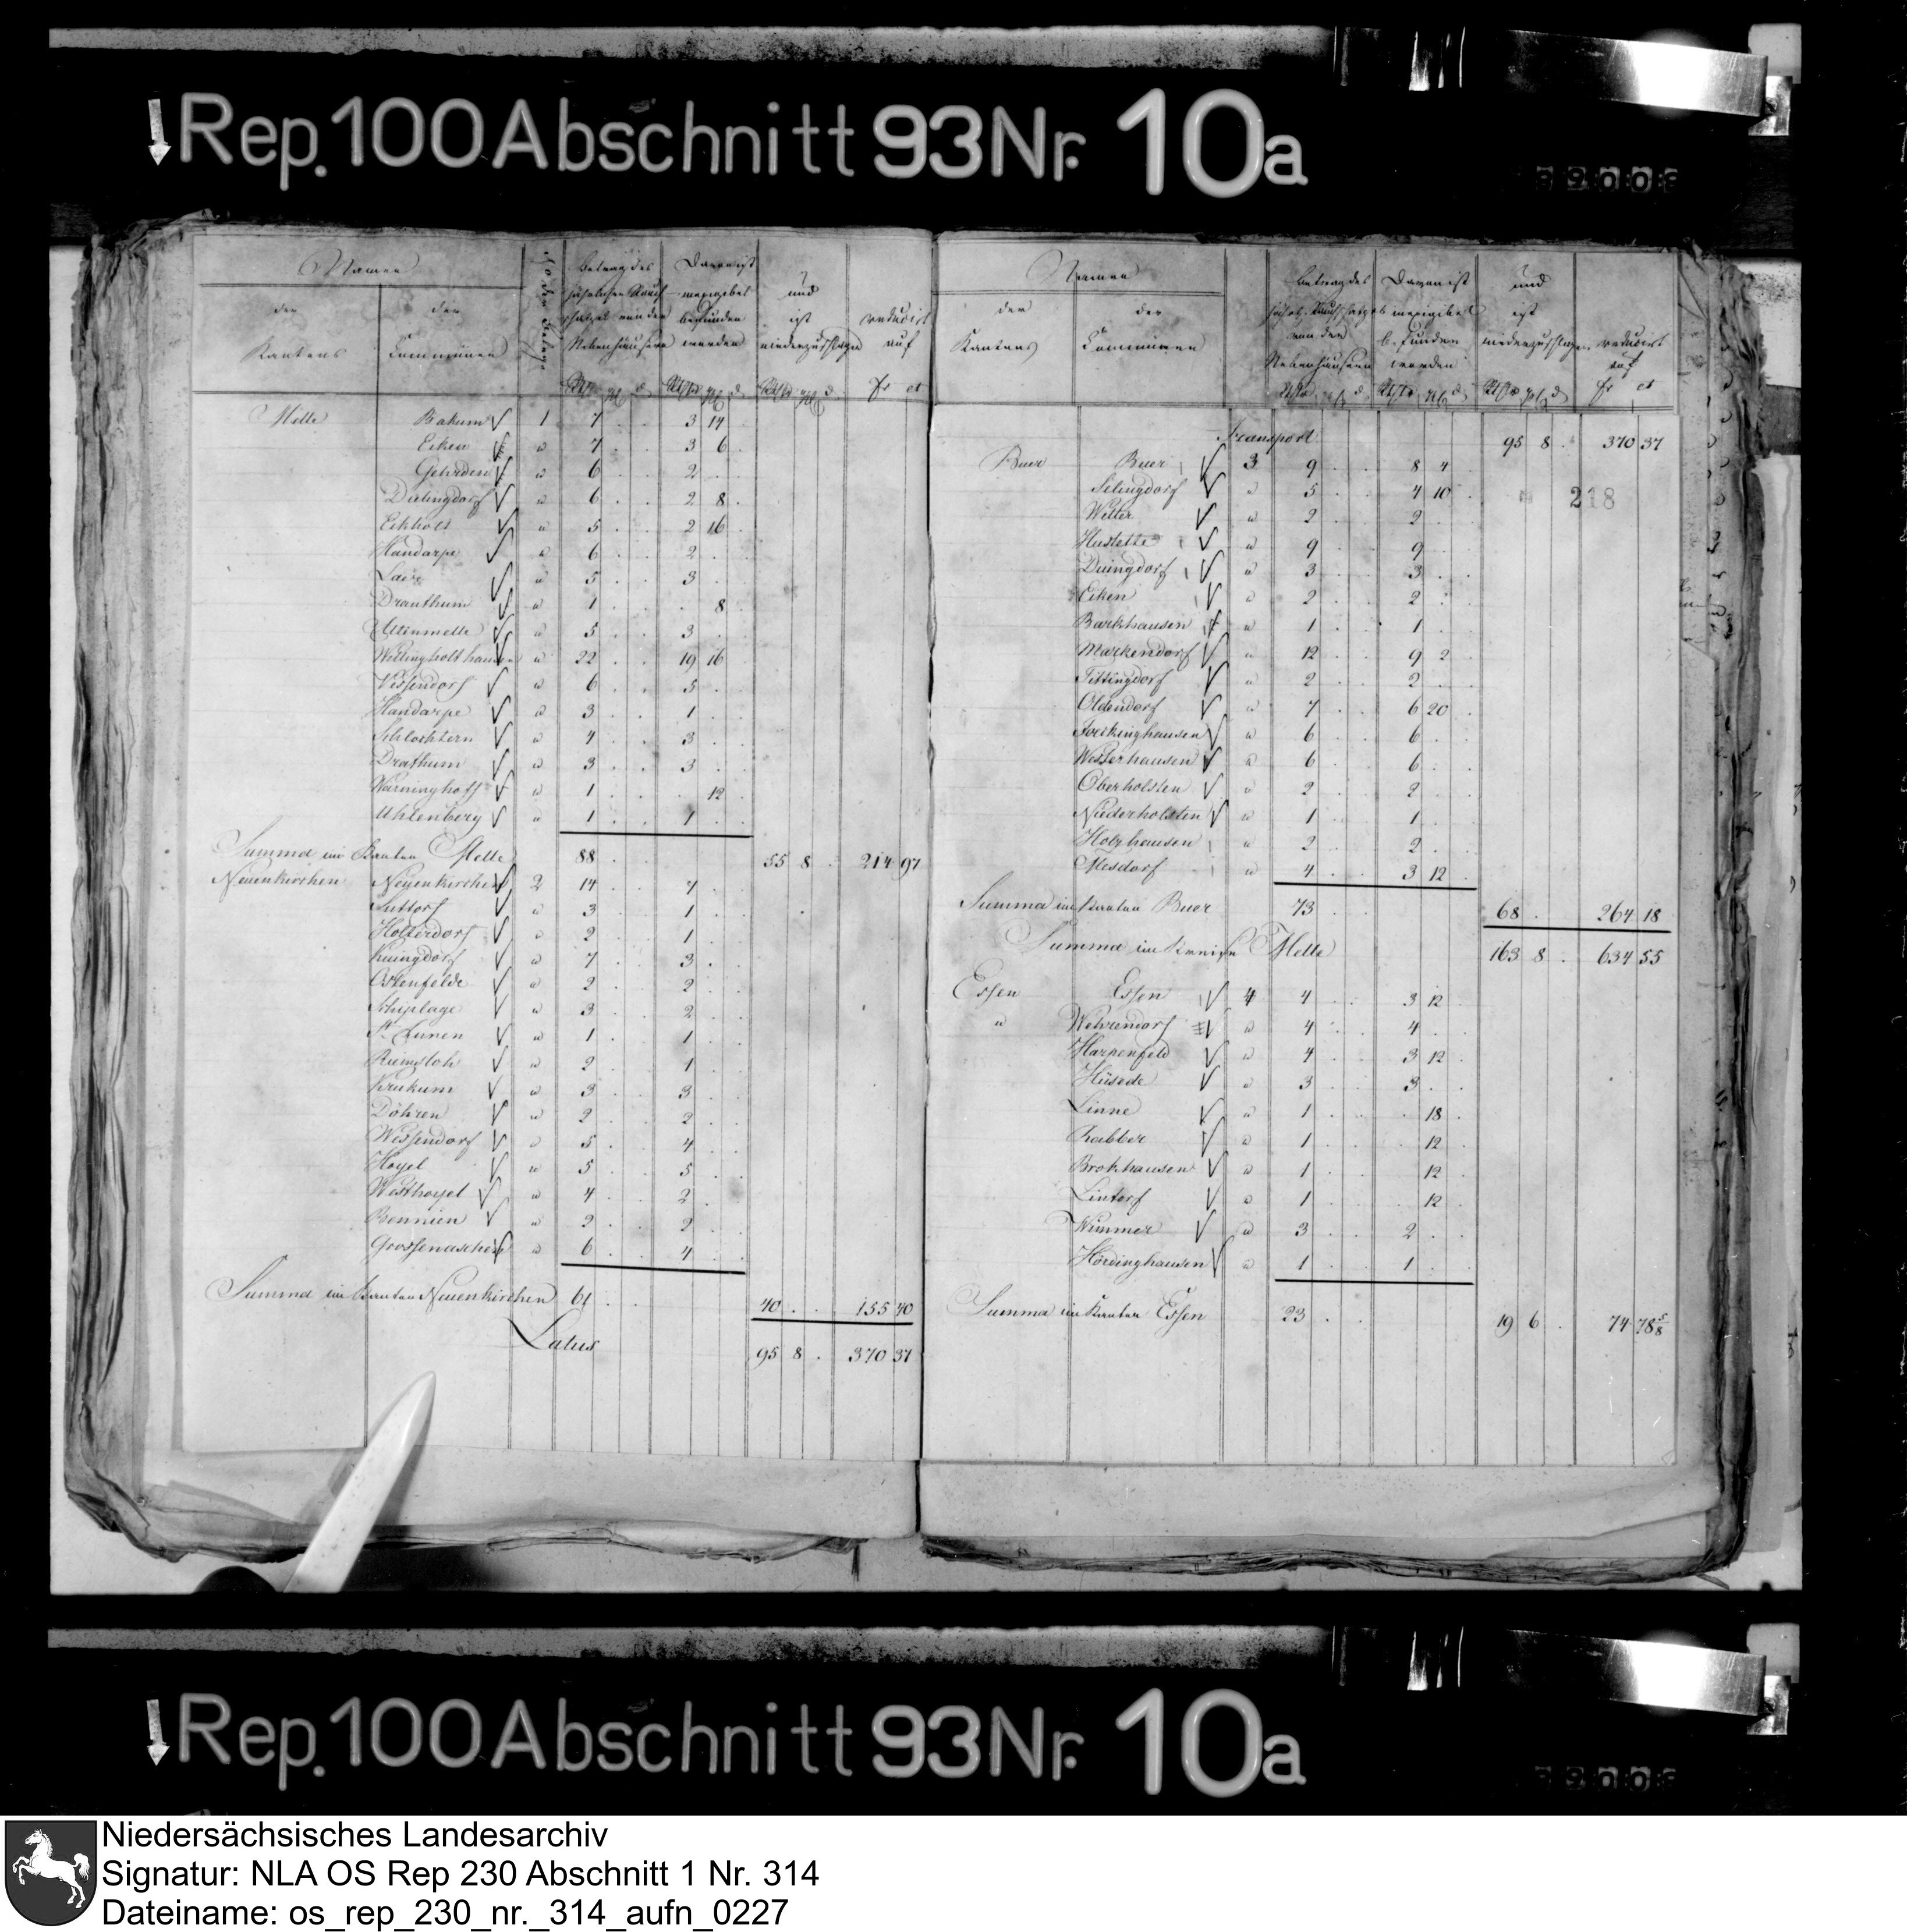 Rep. 100 Abschnitt 93 Nr. 10a
Namen
der Kantons
der Communen
Betrag des jährlichen Rauchschatzes von den Nebenhäusern
Davon ist inexigibel befunden worden
und ist niederzuschlagen
reducirt auf
fr ct
Melle Bakum 1 7 . . 3 14 .
Eicken " 7 . . 3 6 .
Gehrden " 6 . . 2 . .
Dielingdorf " 6 . . 2 8 .
Eickholt " 5 . . 2 16 .
Handarpe " 6 . . 2 . .
Laer " 5 . . 3 . .
Dranthum " 1 . . . 8 .
Altenmelle " 5 . . 3 . .
Wellingholthausen " 22 . . 19 16 .
Vessendorf " 6 . . 5 . .
Handarpe " 3 . . 1 . .
Schlochtern " 4 . . 3 . .
Drathum " 3 . . 3 . .
Warringhof " 1 . . . 12 .
Uhlenberg " 1 . . 1 . .
Summa im Kanton Melle 88 . . 55 8 . 214 97
Neuenkirchen Neuenkirchen 2 14 . . 7 . .
Suttorf " 3 . . 1 . .
Holterdorf " 2 . . 1 . .
Küingdorf " 7 . . 3 . .
Ostenfelde " 2 . . 2 . .
Schiplage " 3 . . 2 . .
" 1 . . 1 . .
Riemsloh " 2 . . 1 . .
Krukum " 3 . . 3 . .
Döhren " 2 . . 2 . .
Wessendorf " 5 . . 4 . .
Hoyel " 5 . . 5 . .
Westhoyel " 4 . . 2 . .
Bennien " 2 . . 2 . .
Grossenaschen " 6 . . 4 . .
Summa im Kanton Neuenkirchen 61 . . 40 . . 155 40
Latus 95 8 . 370 37
Namen
der Kantons
der Communen
Betrag des jährl. Rauchschatzes von den Nebenhäusern
Davon ist inexigibel befunden worden
und ist niederzuschlagen
reducirt auf
fr ct
Transport 95 8 . 370 37
Buer Buer 3 9 . . 8 4 .
218
Sehlingdorf " 5 . . 4 10 .
Wetter " 2 . . 2 . .
Hustette " 9 . . 9 . .
Düingdorf " 3 . . 3 . .
Eiken " 2 . . 2 . .
Barkhausen " 1 . . 1 . .
Markendorf " 12 . . 9 2 .
Tittingdorf " 2 . . 2 . .
Oldendorf " 7 . . 6 20 .
Föckinghausen " 6 . . 6 . .
Westerhausen " 6 . . 6 . .
Oberholsten " 2 . . 2 . .
Niederholsten " 1 . . 1 . .
Holzhausen " 2 . . 2 . .
Mesdorf " 4 . . 3 12 .
Summa im Kanton Buer 73 . . 68 . . 264 18
Summa im Kreise Melle 163 8 . 634 55
Essen Essen 4 4 . . 3 12 .
" Wehrendorf " 4 . . 4 . .
Harpenfeld " 4 . . 3 12 .
Hüsede " 3 . . 3 . .
Linne " 1 . . . 18 .
Rabber " 1 . . . 12 .
Brokhausen " 1 . . . 12 .
Lintorf " 1 . . . 12 .
Wimmer " 3 . . 2 . .
Hördinghausen " 1 . . 1 . .
Summa im Kanton Essen 23 . . 19 6 . 74 78 5/8
Rep. 100 Abschnitt 93 Nr. 10a
Niedersächsisches Landesarchiv
Signatur: NLA OS Rep 230 Abschnitt 1 Nr. 314
Dateiname: os_rep_230_nr._314_aufn_0227